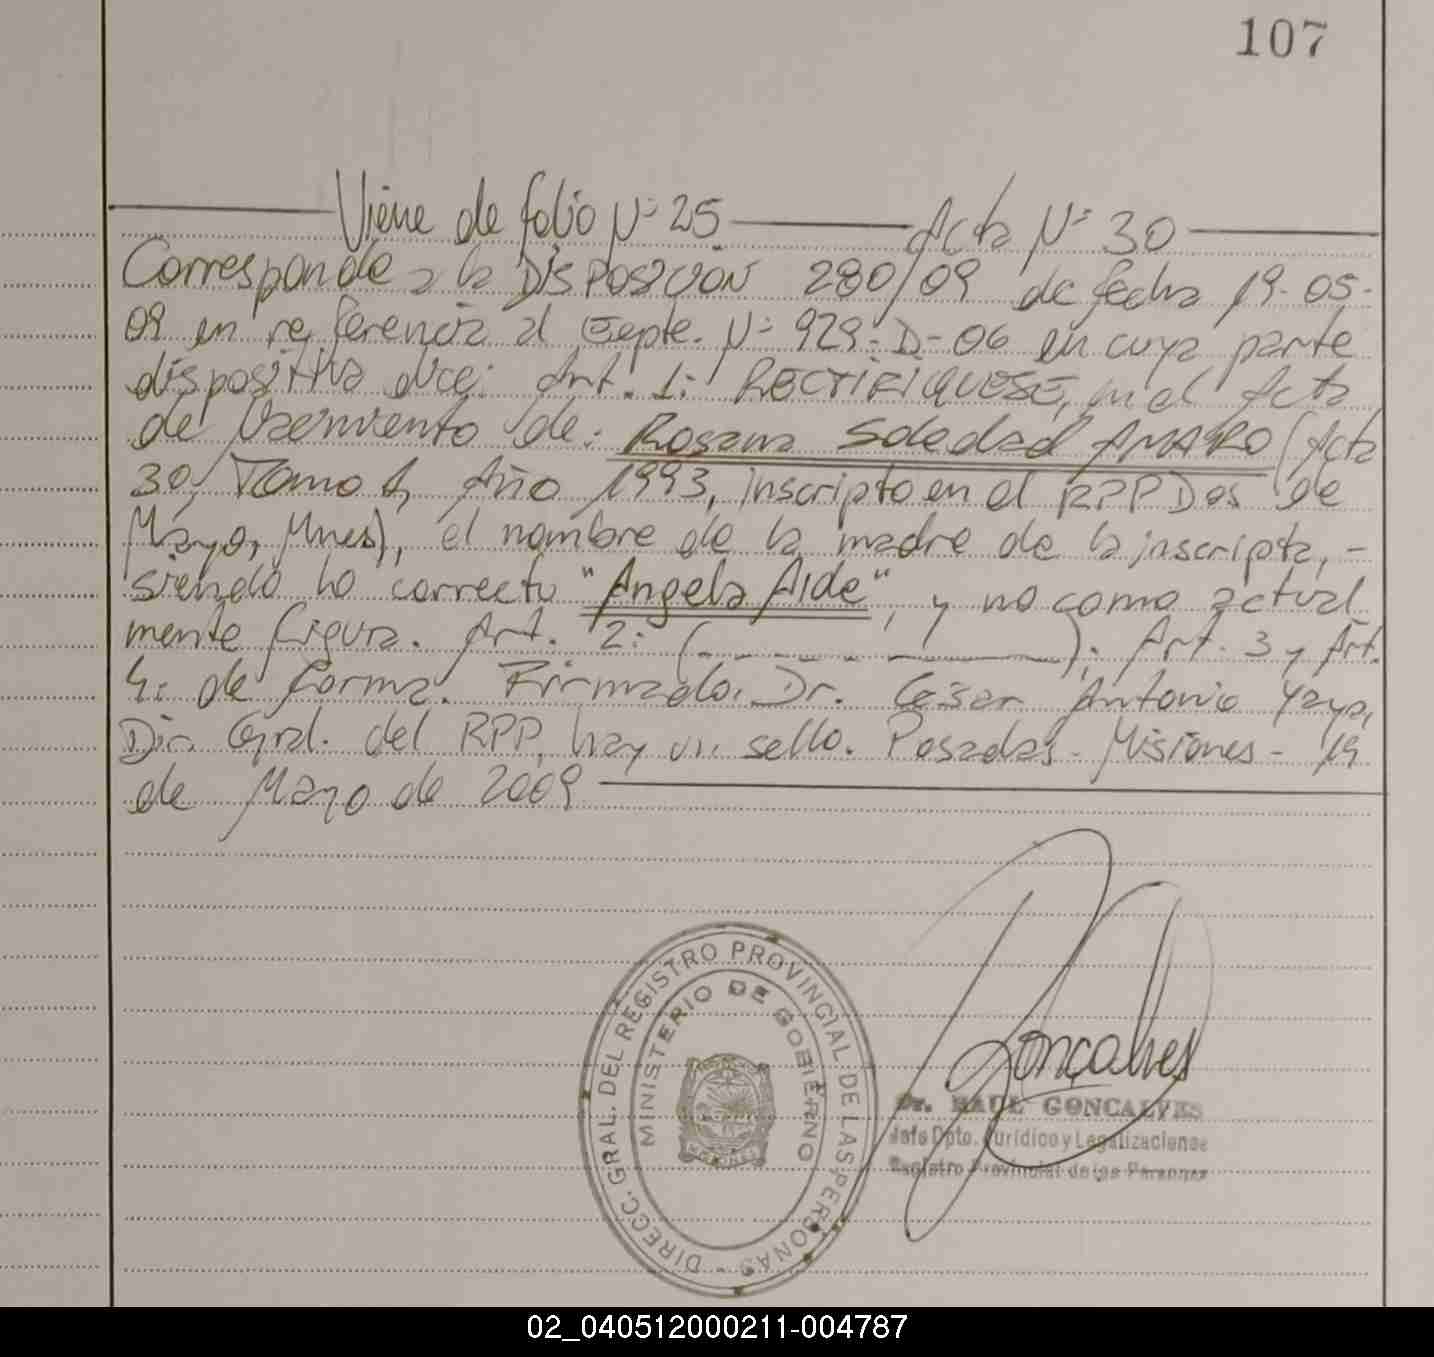 107
Viene de folio Nº 25 Acta Nº 30
Corresponde a la DISPOSICION 280/09 de fecha 19-05-
09 en referencia al Expte. Nº 929-D-06 en cuya parte
dispositiva dice: Art. 1: RECTIFIQUESE, en el Acta
de Nacimiento de: Rosana Soledad AMARO (Acta
30, Tomo 1, Año 1993, inscripto en el RPP Dos de
Mayo, Mnes), el nombre de la madre de la inscripta, -
siendo lo correcto "Angela Aide", y no como actual
mente figura. Art. 2: (_ _ _ _ _ _). Art. 3 y Art.
4: de forma. Firmado. Dr. César Antonio Yaya,
Dir. Gral. del RPP, hay un sello. Posadas - Misiones - 19
de Mayo de 2009
DIRECC. GRAL. DEL REGISTRO PROVINCIAL DE LAS PERSONAS -
MINISTERIO DE GOBIERNO
MISIONES
Goncalves
Dr. RAUL GONCALVES
Jefe Dpto. Jurídico y Legalizaciones
Registro Provincial de las Personas
02_040512000211-004787